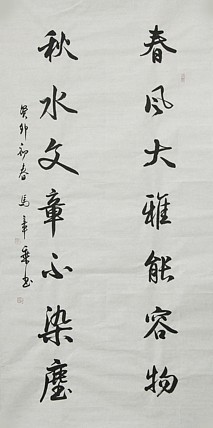 春风大雅能容物
秋水文章不染尘
癸卯初春 马